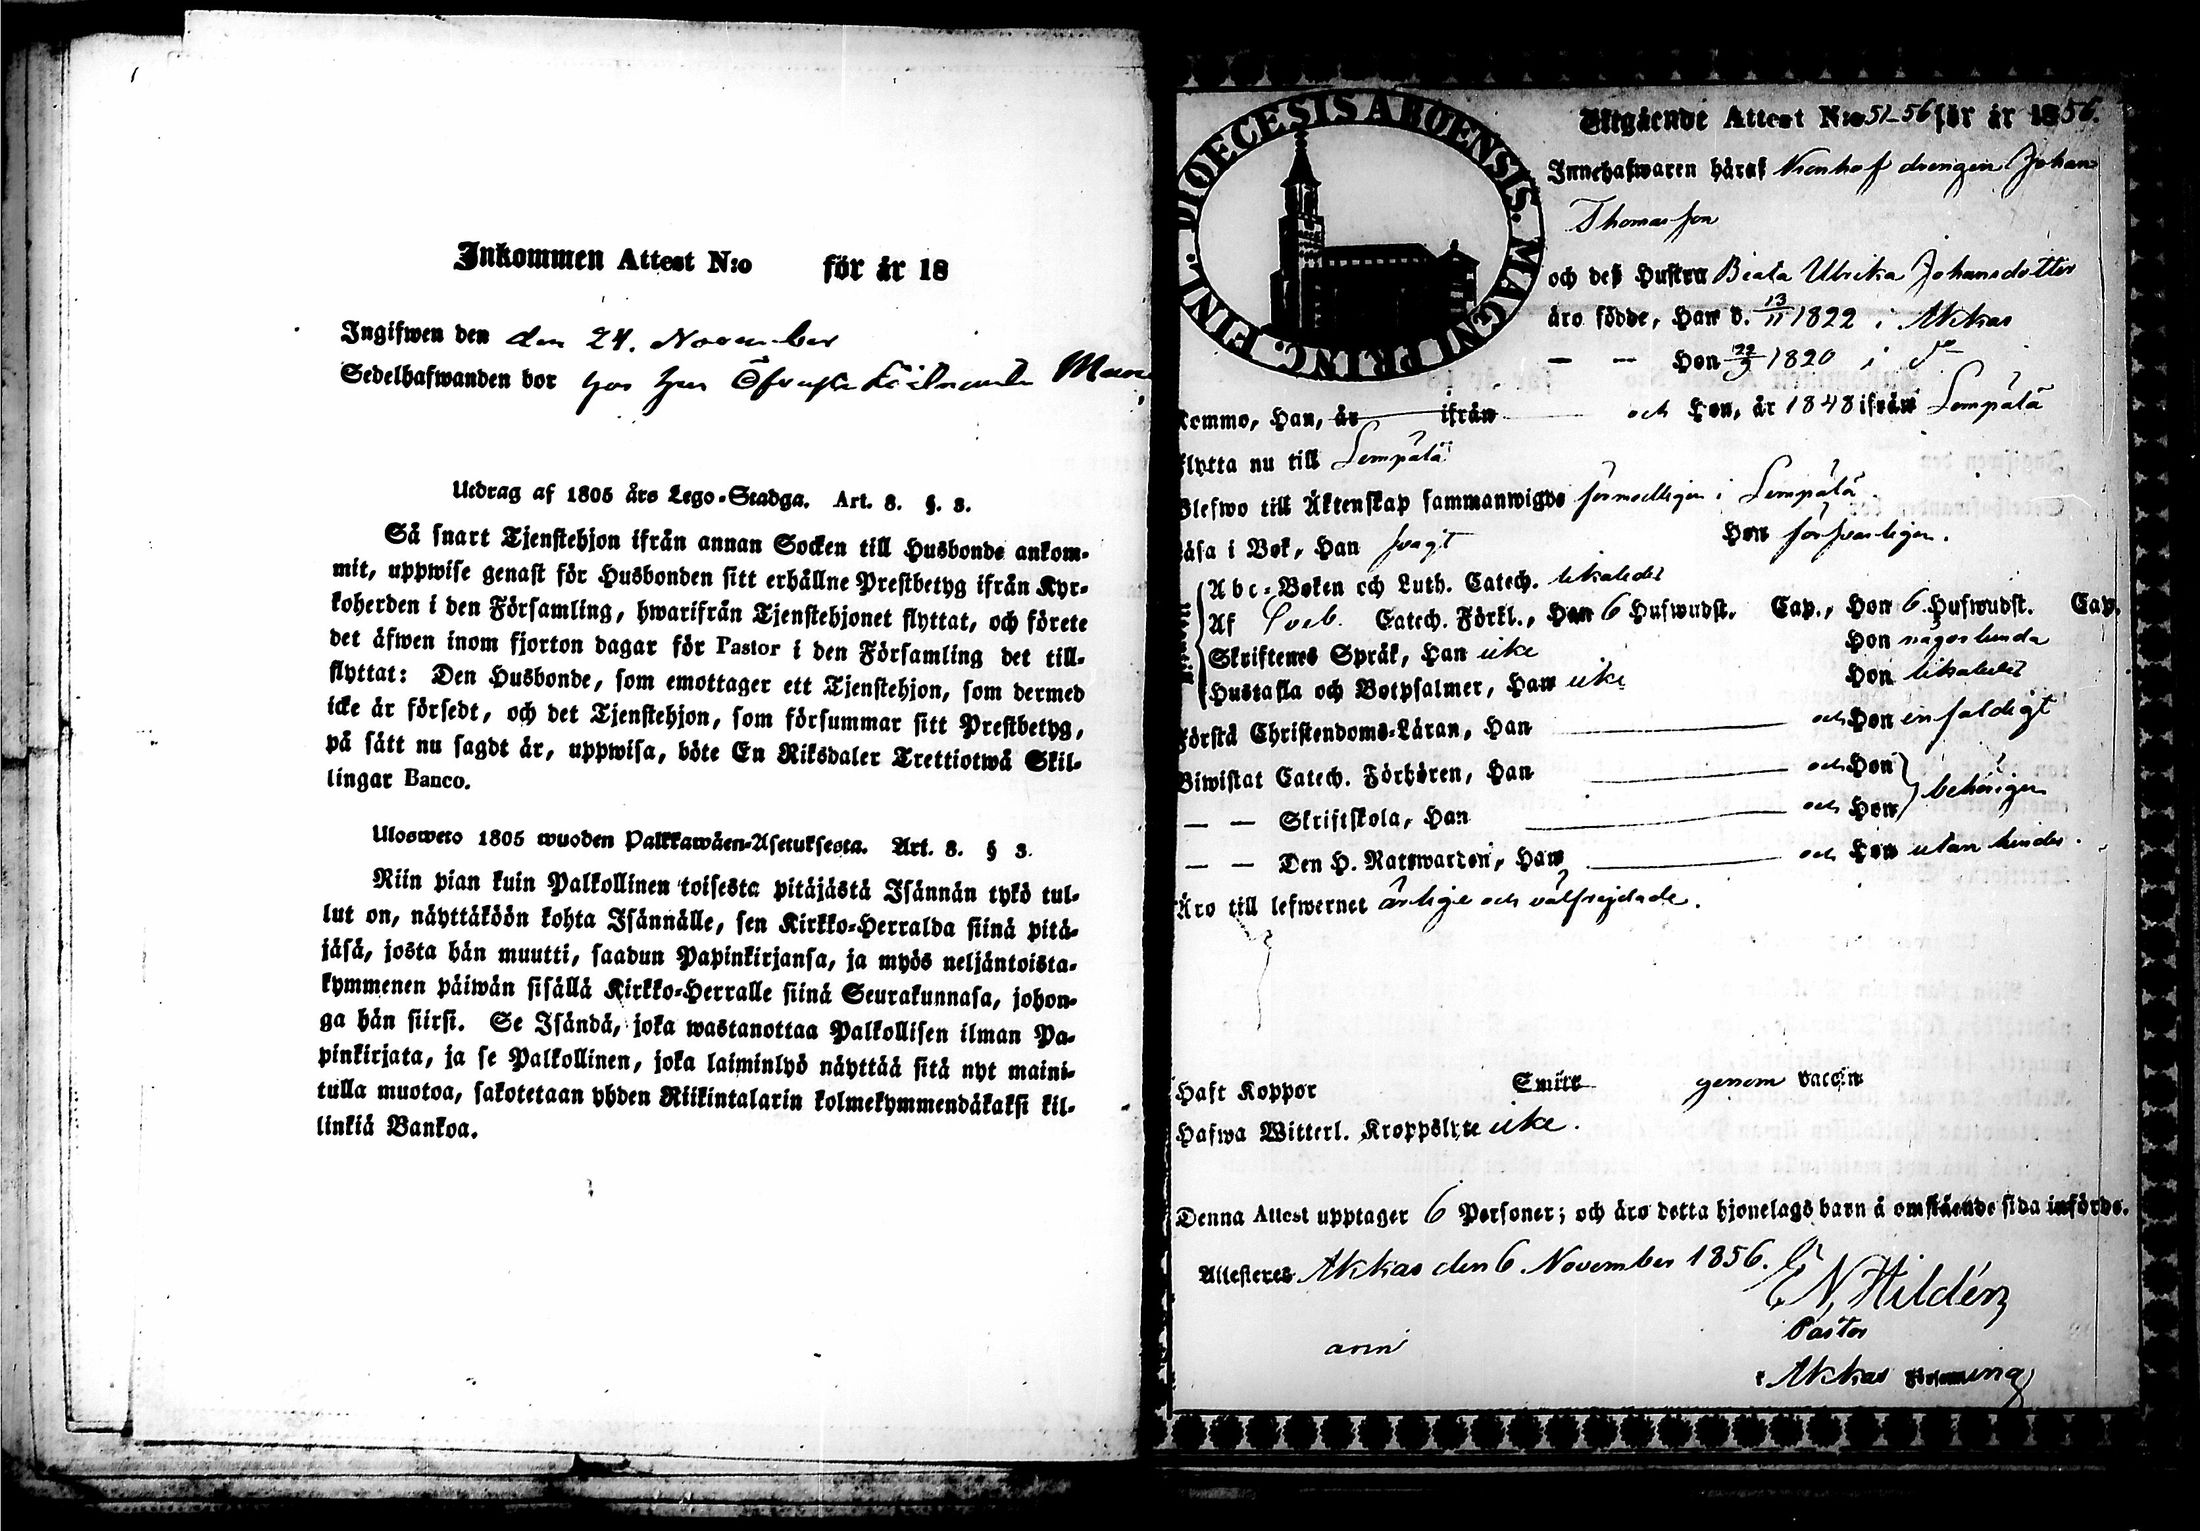 Inkommen Attest N:o för år 18
Ingifwen den den 24. November
Sedelhafwanden bor hos
Utdrag af 1805 års Lego-Stadga. Art. 8. §. 3.
Så snart Tjenstehjon ifrån annan Socken till Husbonde ankom-
mit, uppwise genast för Husbonden sitt erhållne Prestbetyg ifrån Kyr-
koherden i den Församling, hwarifrån Tjenstehjonet flyttat, och förete
det äfwen inom fjorton dagar för Pastor i den Församling det till-
flyttat: Den Husbonde, som emottager ett Tjenstehjon, som dermed
icke är försedt, och det Tjenstehjon, som försummar sitt Prestbetyg,
på sätt nu sagdt är, uppwisa, böte En Riksdaler Trettiotwå Skil-
lingar Banco.
Ulosweto 1805 wuoden Palkkawäen-Asetuksesta. Art. 8. § 3.
Niin pian kuin Palkollinen toisesta pitäjästä Isännän tykö tul-
lut on, näyttäköön kohta Isännälle, sen Kirkko-Herralda siinä pitä-
jäsä, josta hän muutti, saadun Papinkirjansa, ja myös neljäntoista-
kymmenen päiwän sisällä Kirkko-Herralle siinä Seurakunnasa, johon-
ga hän siirsi. Se Isändä, joka wastanottaa Palkollisen ilman Pa-
pinkirjata, ja se Palkollinen, joka laiminlyö näyttää sitä nyt maini-
tulla muotoa, sakotetaan yhden Riikintalarin kolmekymmendäkaksi kil-
linkiä Bankoa.
DIOECESIS ABOENSIS. MAGNI PRINC. FINL.
Utgående Attest N:o 51-56 för år 1856.
Innehafwaren häraf drengen Johan
Thomasson
och deß Hustru Beata Ulrika Johansdotter
äro födde, Han d. 13/11 1822 i Akkas
— — Hon 22/9 1820 i do
Kommo, Han, år ifrån och Hon, år 1848 ifrån Lempälä
Flytta nu till Lempälä
Blefwo till Äktenskap sammanwigde i Lempälä.
Läsa i Bok, Han svagt Hon försvarligen.
Abc-Boken och Luth. Catech. likaledes
Af Sveb. Catech. Förkl., Han 6 Hufwudst. Cap., Hon 6 Hufwudst. Cap.
Skriftenes Språk, Han icke Hon någorlunda
Hustafla och Botpsalmer, Han icke Hon likaledes
Förstå Christendoms-Läran, Han och Hon enfaldigt
Biwistat Catech. Förhören, Han och Hon
behörigen
— — Skriftskola, Han och Hon
— — Den H. Nattwarden, Han och Hon utan hinder.
Äro till lefwernet ärlige och välfrejdade.
Haft Koppor Smitt genom vaccin
Hafwa Witterl. Kroppslyte icke.
Denna Attest upptager 6 Personer; och äro detta hjonelags barn å omstående sida införde.
Attesteres Akkas den 6 November 1856.
E N Hildén
Pastor
i Akkas Församling